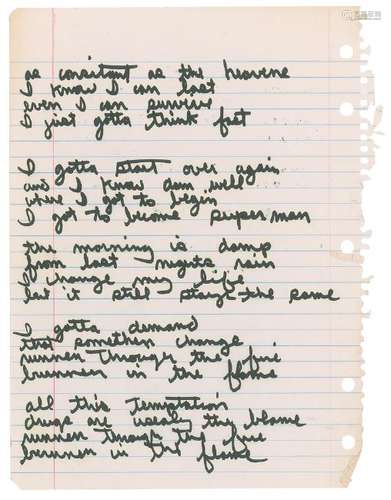 as consitant as the heavens
I know I can last
even I can survive
I just gotta think fast
I gotta start over again
and I know dam well
where I got to begin
I got to become superman
the morning is damp
from last nights rain
I change my life
but it still stays the same
I gotta demand
that somethen change
runnen through the fire
burnnen in the flame
all this temptation
drugs are usealy thy blame
runnen though thy fire
burnnen in the flame